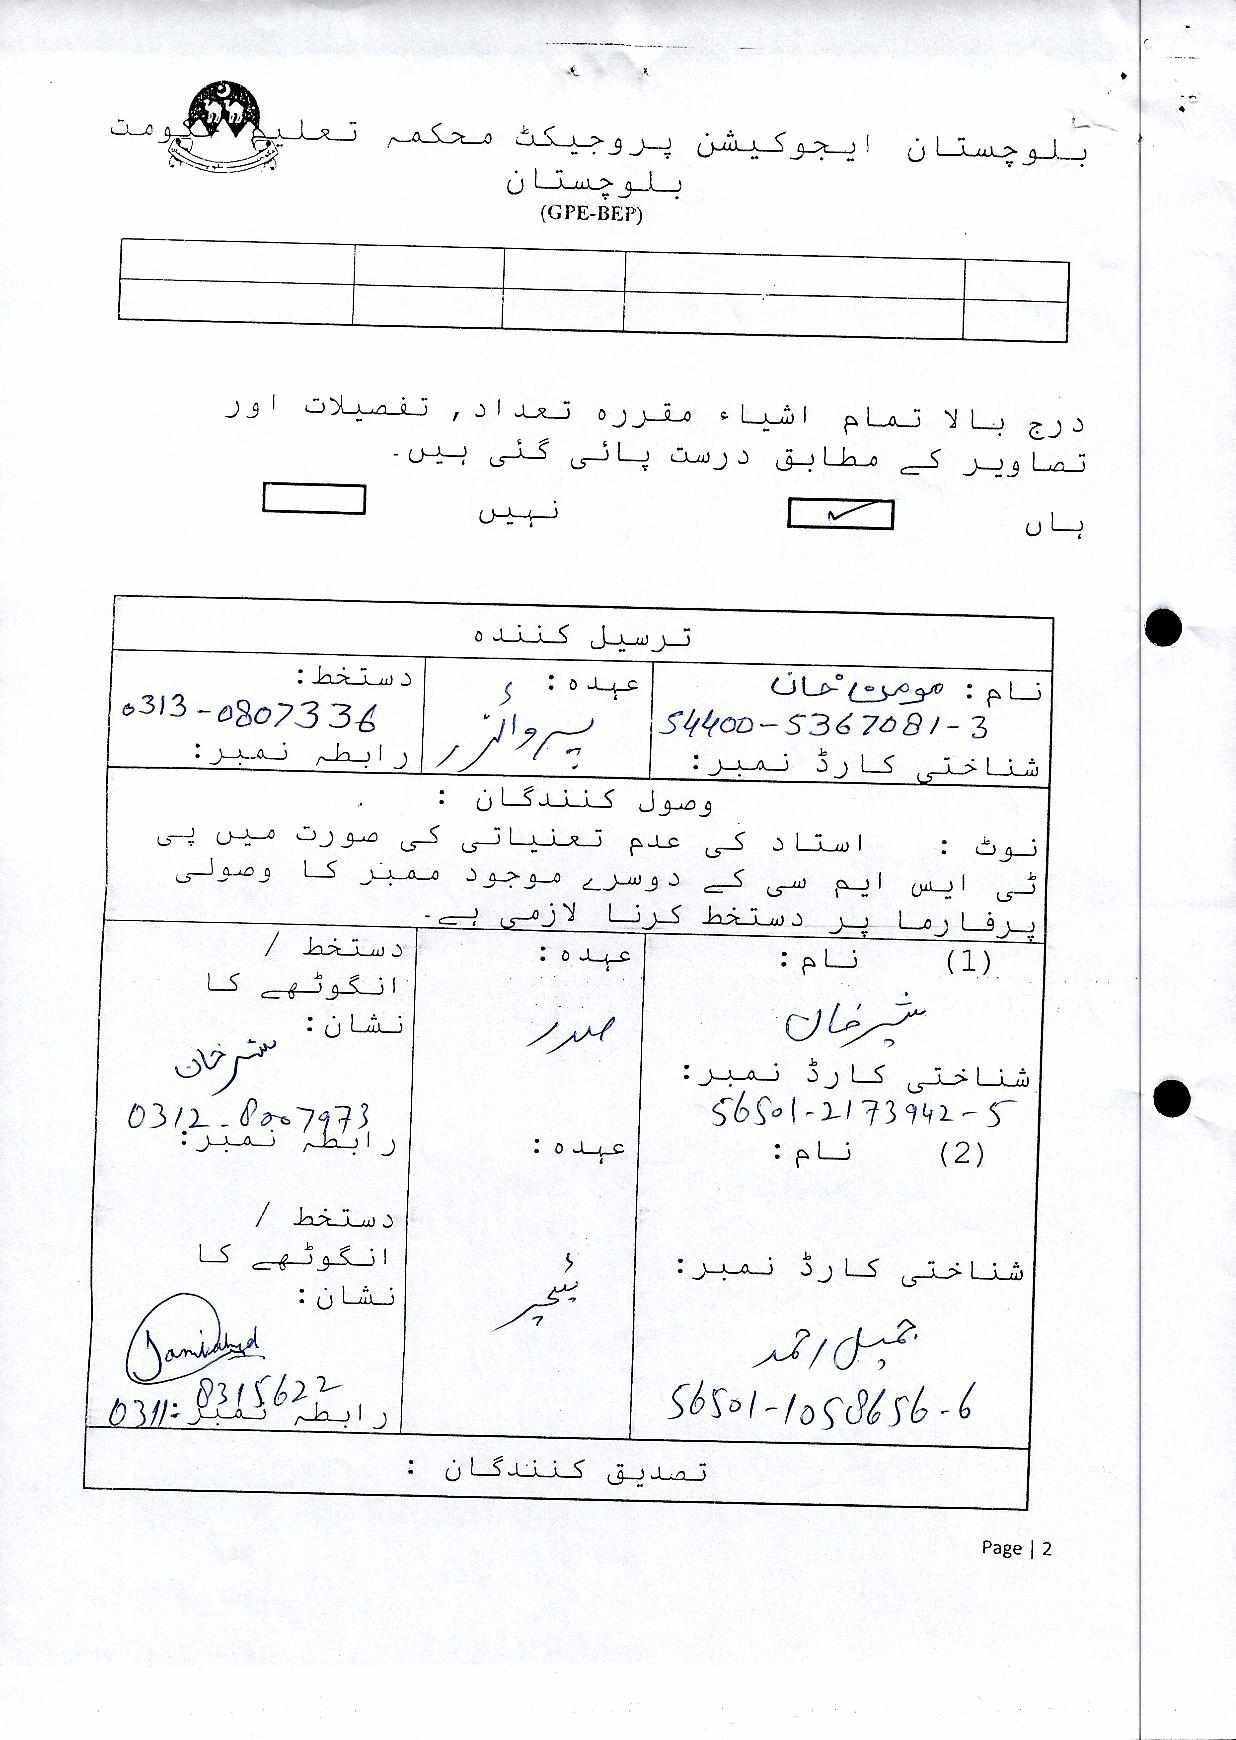 بلوچستان ایجوکیشن پروجیکٹ محکمہ تعلیم حکومت
بلوچستان
(GPE-BEP)
درج بالا تمام اشیاء مقررہ تعداد, تفصیلات اور
تصاویر کے مطابق درست پائی گئی ہیں۔
ہاں ✓ نہیں
ترسیل کنندہ
نام: عہدہ: دستخط:
54400-5367081-3 0313-0807336
شناختی کارڈ نمبر: رابطہ نمبر:
وصول کنندگان :
نوٹ : استاد کی عدم تعنیاتی کی صورت میں پی
ٹی ایس ایم سی کے دوسرے موجود ممبر کا وصولی
پرفارما پر دستخط کرنا لازمی ہے۔
(1) نام: عہدہ: دستخط /
انگوٹھے کا
نشان:
شیر خان صدر شیر خان
شناختی کارڈ نمبر:
56501-2173942-5 0312-8007973
رابطہ نمبر:
(2) نام: عہدہ:
دستخط /
شناختی کارڈ نمبر: انگوٹھے کا
نشان:
جمیل احمد ٹیچر
56501-1058656-6 0311 8315622
رابطہ نمبر:
تصدیق کنندگان :
Page | 2